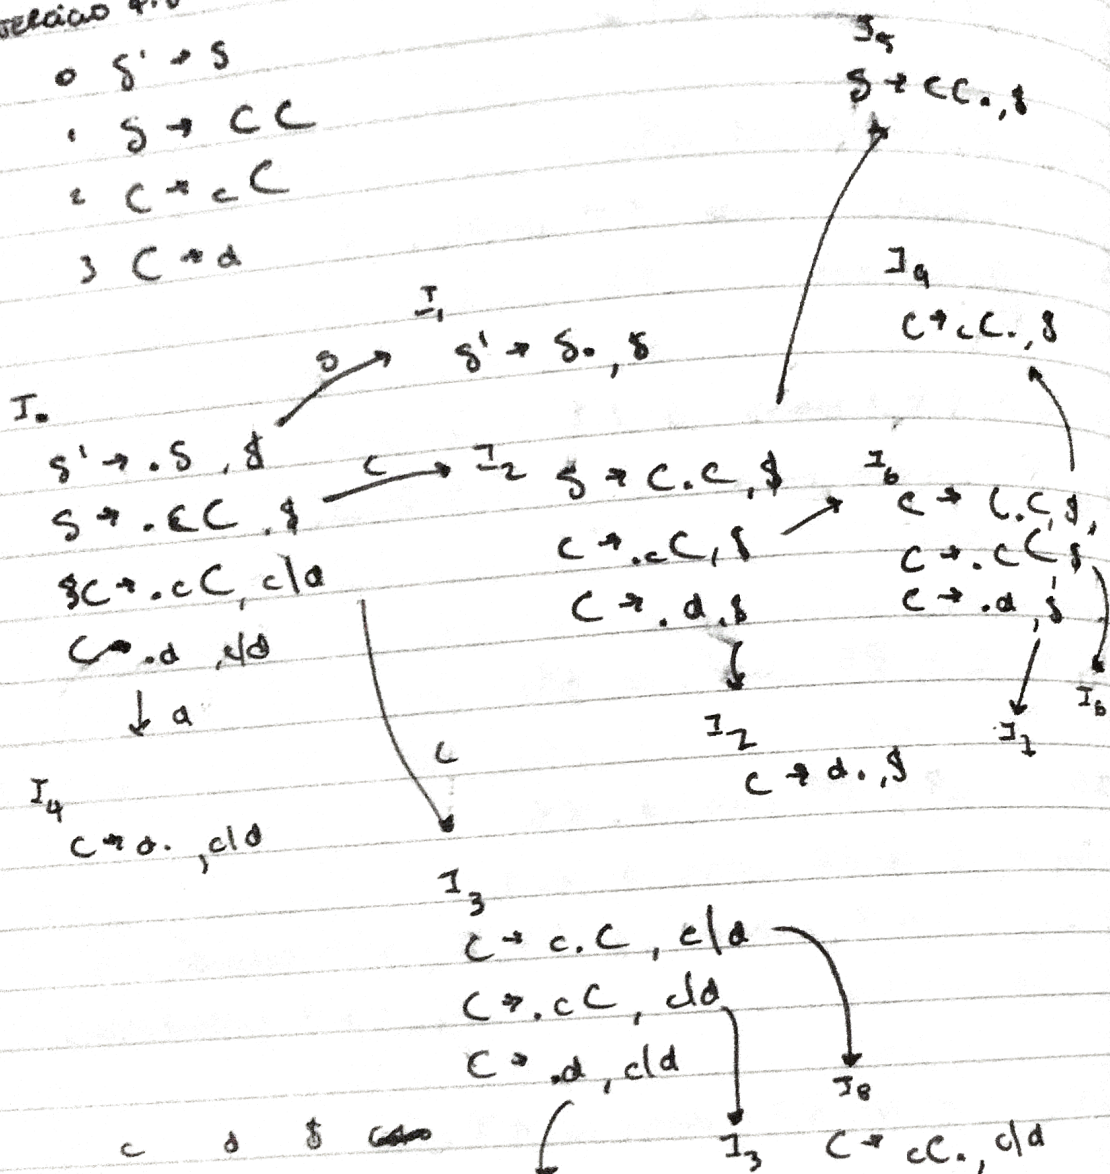 0 S' → S
1 S → CC
2 C → cC
3 C → d
I5
S → CC., $
I9
C → cC., $
I1
S' → S., $
S
I0
S' → .S, $
S → .CC, $
C → .cC, c/d
C → .d, c/d
d
C
I2
S → C.C, $
C → .cC, $
C → .d, $
I6
C → c.C, $,
C → .cC, $
C → .d, $
I6
I7
I2
C → d., $
I4
C → d., c/d
c
I3
C → c.C, c/d
C → .cC, c/d
C → .d, c/d
I8
C → cC., c/d
I3
c d $